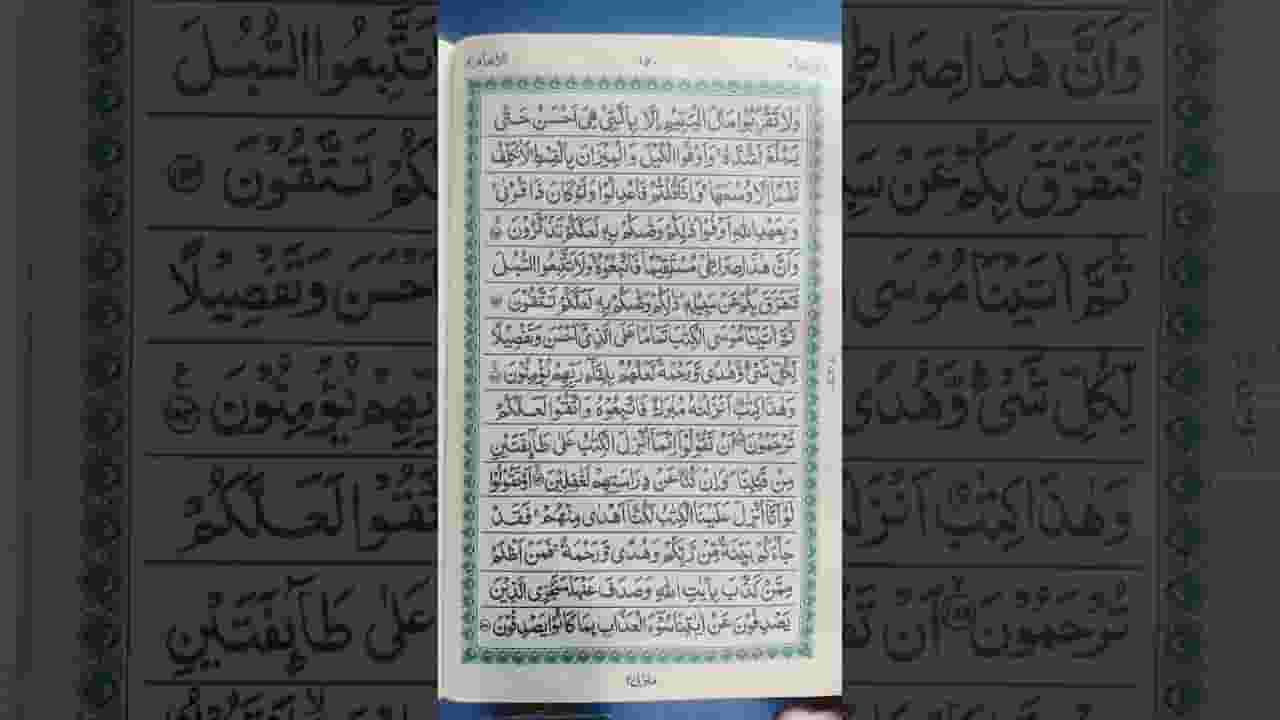 الانعام ٦
١٥٠
وَلَا تَقْرَبُوْا مَالَ الْيَتِيْمِ اِلَّا بِالَّتِيْ هِيَ اَحْسَنُ حَتّٰى
يَبْلُغَ اَشُدَّهٗ وَاَوْفُوا الْكَيْلَ وَالْمِيْزَانَ بِالْقِسْطِ لَا نُكَلِّفُ
نَفْسًا اِلَّا وُسْعَهَا وَاِذَا قُلْتُمْ فَاعْدِلُوْا وَلَوْ كَانَ ذَا قُرْبٰى
وَبِعَهْدِ اللّٰهِ اَوْفُوْا ذٰلِكُمْ وَصّٰىكُمْ بِهٖ لَعَلَّكُمْ تَذَكَّرُوْنَ
وَاَنَّ هٰذَا صِرَاطِيْ مُسْتَقِيْمًا فَاتَّبِعُوْهُ وَلَا تَتَّبِعُوا السُّبُلَ
فَتَفَرَّقَ بِكُمْ عَنْ سَبِيْلِهٖ ذٰلِكُمْ وَصّٰىكُمْ بِهٖ لَعَلَّكُمْ تَتَّقُوْنَ
ثُمَّ اٰتَيْنَا مُوْسَى الْكِتٰبَ تَمَامًا عَلَى الَّذِيْ اَحْسَنَ وَتَفْصِيْلًا
لِّكُلِّ شَيْءٍ وَّهُدًى وَّرَحْمَةً لَّعَلَّهُمْ بِلِقَآءِ رَبِّهِمْ يُؤْمِنُوْنَ
وَهٰذَا كِتٰبٌ اَنْزَلْنٰهُ مُبٰرَكٌ فَاتَّبِعُوْهُ وَاتَّقُوْا لَعَلَّكُمْ
تُرْحَمُوْنَ اَنْ تَقُوْلُوْا اِنَّمَا اُنْزِلَ الْكِتٰبُ عَلٰى طَآئِفَتَيْنِ
مِنْ قَبْلِنَا وَاِنْ كُنَّا عَنْ دِرَاسَتِهِمْ لَغٰفِلِيْنَ اَوْ تَقُوْلُوْا
لَوْ اَنَّا اُنْزِلَ عَلَيْنَا الْكِتٰبُ لَكُنَّا اَهْدٰى مِنْهُمْ فَقَدْ
جَآءَكُمْ بَيِّنَةٌ مِّنْ رَّبِّكُمْ وَهُدًى وَّرَحْمَةٌ فَمَنْ اَظْلَمُ
مِمَّنْ كَذَّبَ بِاٰيٰتِ اللّٰهِ وَصَدَفَ عَنْهَا سَنَجْزِي الَّذِيْنَ
يَصْدِفُوْنَ عَنْ اٰيٰتِنَا سُوْٓءَ الْعَذَابِ بِمَا كَانُوْا يَصْدِفُوْنَ